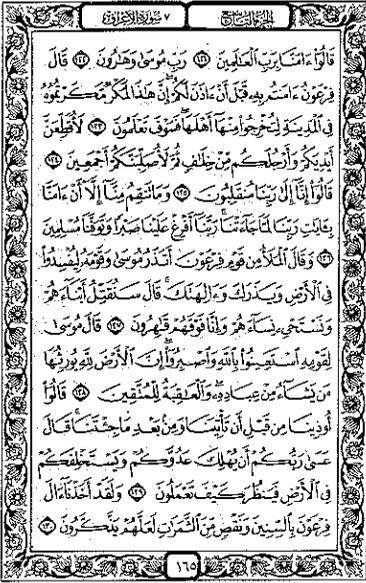 الجزء التاسع ٧ سورة الأعراف
قَالُوٓا۟ ءَامَنَّا بِرَبِّ ٱلْعَـٰلَمِينَ ١٢١ رَبِّ مُوسَىٰ وَهَـٰرُونَ ١٢٢ قَالَ
فِرْعَوْنُ ءَامَنتُم بِهِۦ قَبْلَ أَنْ ءَاذَنَ لَكُمْ إِنَّ هَـٰذَا لَمَكْرٌ مَّكَرْتُمُوهُ
فِى ٱلْمَدِينَةِ لِتُخْرِجُوا۟ مِنْهَآ أَهْلَهَا فَسَوْفَ تَعْلَمُونَ ١٢٣ لَأُقَطِّعَنَّ
أَيْدِيَكُمْ وَأَرْجُلَكُم مِّنْ خِلَـٰفٍ ثُمَّ لَأُصَلِّبَنَّكُمْ أَجْمَعِينَ ١٢٤
قَالُوٓا۟ إِنَّآ إِلَىٰ رَبِّنَا مُنقَلِبُونَ ١٢٥ وَمَا تَنقِمُ مِنَّآ إِلَّآ أَنْ ءَامَنَّا
بِـَٔايَـٰتِ رَبِّنَا لَمَّا جَآءَتْنَا رَبَّنَآ أَفْرِغْ عَلَيْنَا صَبْرًا وَتَوَفَّنَا مُسْلِمِينَ
١٢٦ وَقَالَ ٱلْمَلَأُ مِن قَوْمِ فِرْعَوْنَ أَتَذَرُ مُوسَىٰ وَقَوْمَهُۥ لِيُفْسِدُوا۟
فِى ٱلْأَرْضِ وَيَذَرَكَ وَءَالِهَتَكَ قَالَ سَنُقَتِّلُ أَبْنَآءَهُمْ
وَنَسْتَحْىِۦ نِسَآءَهُمْ وَإِنَّا فَوْقَهُمْ قَـٰهِرُونَ ١٢٧ قَالَ مُوسَىٰ
لِقَوْمِهِ ٱسْتَعِينُوا۟ بِٱللَّهِ وَٱصْبِرُوٓا۟ إِنَّ ٱلْأَرْضَ لِلَّهِ يُورِثُهَا
مَن يَشَآءُ مِنْ عِبَادِهِۦ وَٱلْعَـٰقِبَةُ لِلْمُتَّقِينَ ١٢٨ قَالُوٓا۟
أُوذِينَا مِن قَبْلِ أَن تَأْتِيَنَا وَمِنۢ بَعْدِ مَا جِئْتَنَا قَالَ
عَسَىٰ رَبُّكُمْ أَن يُهْلِكَ عَدُوَّكُمْ وَيَسْتَخْلِفَكُمْ
فِى ٱلْأَرْضِ فَيَنظُرَ كَيْفَ تَعْمَلُونَ ١٢٩ وَلَقَدْ أَخَذْنَآ ءَالَ
فِرْعَوْنَ بِٱلسِّنِينَ وَنَقْصٍ مِّنَ ٱلثَّمَرَٰتِ لَعَلَّهُمْ يَذَّكَّرُونَ ١٣٠
١٦٥